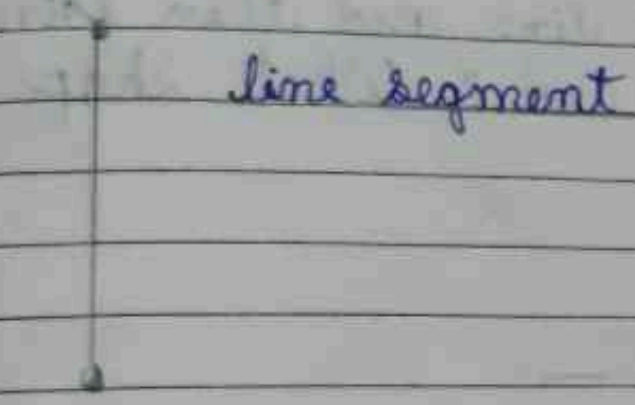 line segment